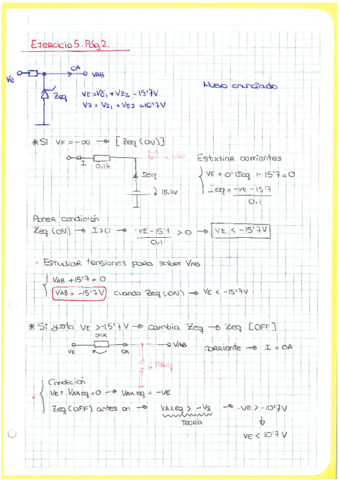 Ejercicio 5. Pág 2.
0A
VE VAB
Nuevo enunciado
Zeq VE = VZ1 + VZ2 = 15'7V
VZ = VZ1 + VZ2 = 10'7V
* Si VE = -∞ → [Zeq (ON)]
I 0,1k
Ieq
15.7V
Estudiar corrientes
VE + 0'1Ieq + 15'7 = 0
Ieq = -VE - 15'7
0,1
Poner condición
Zeq (ON) → I > 0 → -VE - 15'7 > 0 → VE < -15'7V
0,1
Estudiar tensiones para saber VAB
VAB + 15'7 = 0
VAB = -15'7V cuando Zeq (ON) → VE < -15'7V
* Si justo VE > -15'7V → cambia Zeq → Zeq [OFF]
VE 0A VAB
Corriente → I = 0A
Condición
VE + VAKeq = 0 → VAKeq = -VE
Zeq (OFF) antes on → VAKeq > -VZ → -VE > -10'7V
TEORÍA
VE < 10'7V